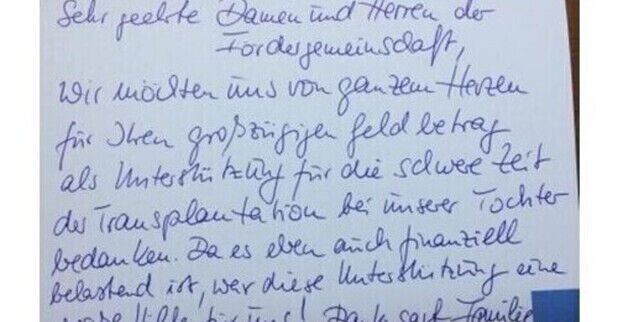 Sehr geehrte Damen und Herren der
Fördergemeinschaft,
Wir möchten uns von ganzem Herzen
für Ihren großzügigen Geldbetrag
als Unterstützung für die schwere Zeit
der Transplantation bei unserer Tochter
bedanken. Da es eben auch finanziell
belastend ist, war diese Unterstützung eine
Hilfe für uns! Dank sagt Familie